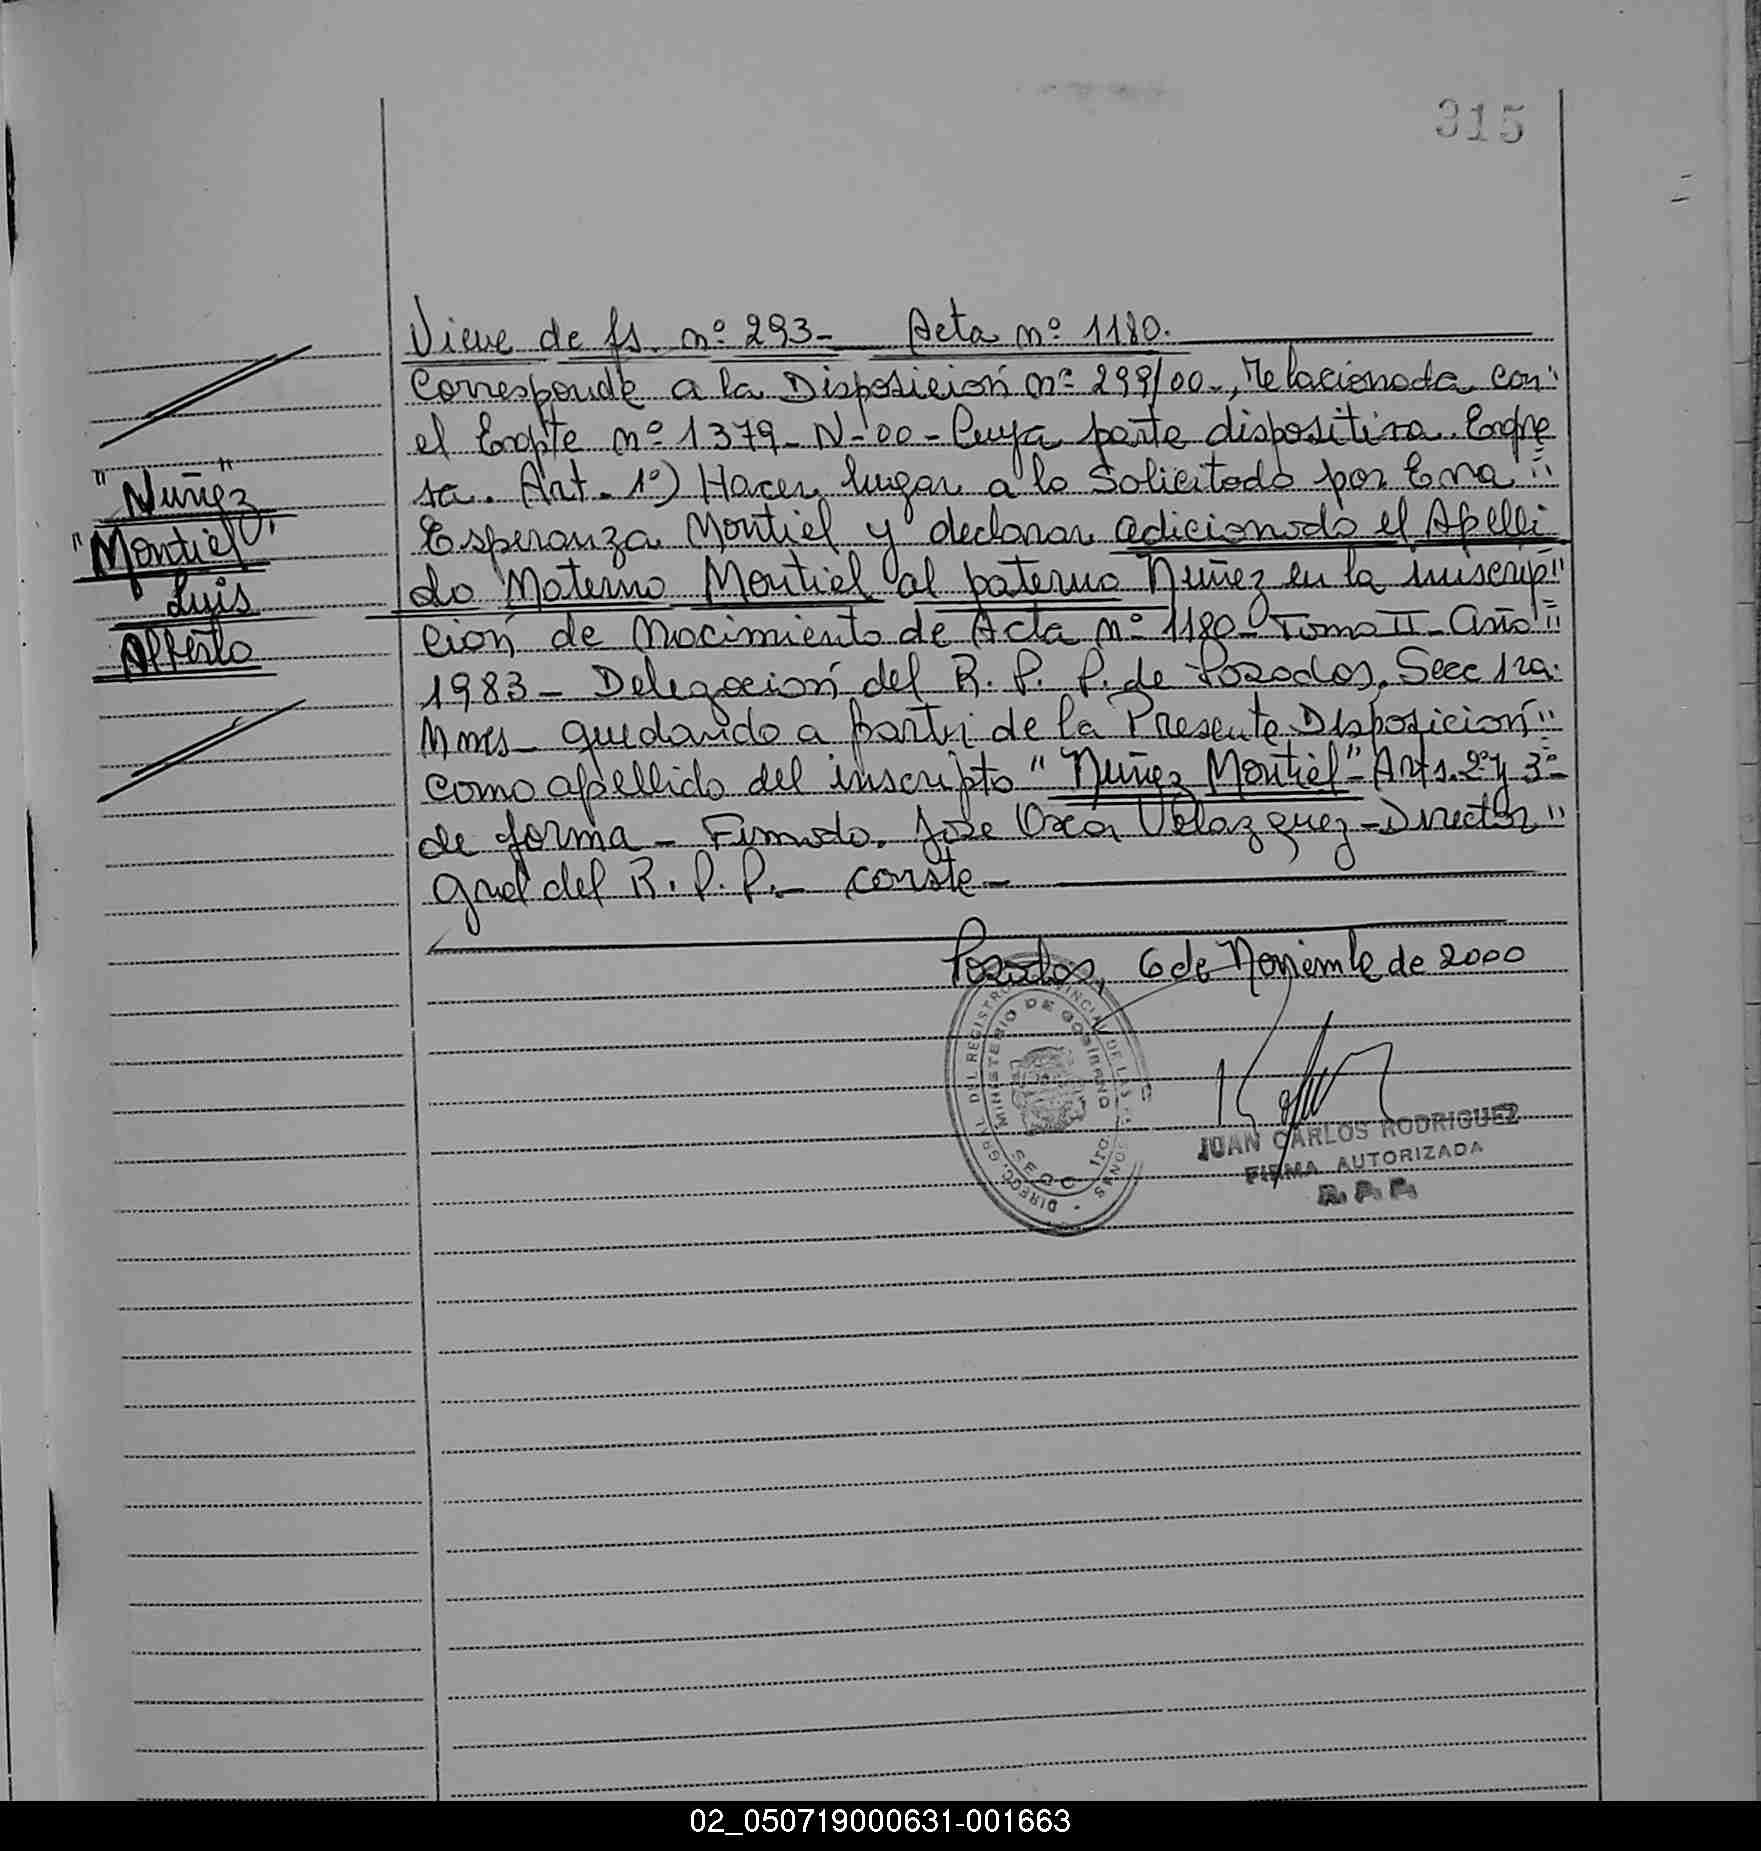 315
Viene de fs. nº 293- Acta nº 1180.
Corresponde a la Disposición nº 299/00-, relacionada con"
el Expte nº 1379-N-00- Cuya parte dispositiva. Expre
sa. Art. 1º) Hacer lugar a lo Solicitado por Ema
Esperanza Montiel y declarar adicionado el Apelli
do Materno Montiel al paterno Nuñez en la inscrip"
ción de Nacimiento de Acta nº 1180- Tomo II- año"
1983- Delegación del R. P. P. de Posadas, Secc 1ra.
Mnes- quedando a partir de la Presente Disposición"
como apellido del inscripto "Nuñez Montiel"- Arts. 2º y 3º-
de forma- Firmado. José Oscar Velazquez-Director"
Gral del R. P. P.- conste-
"Nuñez"
"Montiel"
Luis
Alberto
Posadas, 6 de Noviembre de 2000
DIRECC. GRAL. DEL REGISTRO PROVINCIAL DE LAS PERSONAS
MINISTERIO DE GOBIERNO
SECC
JUAN CARLOS RODRIGUEZ
FIRMA AUTORIZADA
R. P. P.
02_050719000631-001663